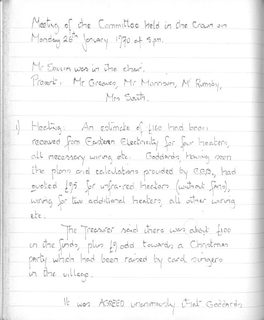 Meeting of the Committee held in the Crown on
Monday 26th January 1970 at 8pm.
Mr was in the chair.
Present: Mr Greaves, Mr Morrison, Mr Rumsby,
Mrs Smith.
1) Heating: An estimate of £160 had been
received from Eastern Electricity for four heaters,
all necessary wiring etc. Goddards, having seen
the plans and calculations provided by E.E.B, had
quoted £95 for infra-red heaters (without fans),
wiring for two additional heaters, all other wiring
etc.
The Treasurer said there was about £100
in the funds, plus £9 odd towards a Christmas
party which had been raised by carol singers
in the village.
It was AGREED unanimously that Goddards